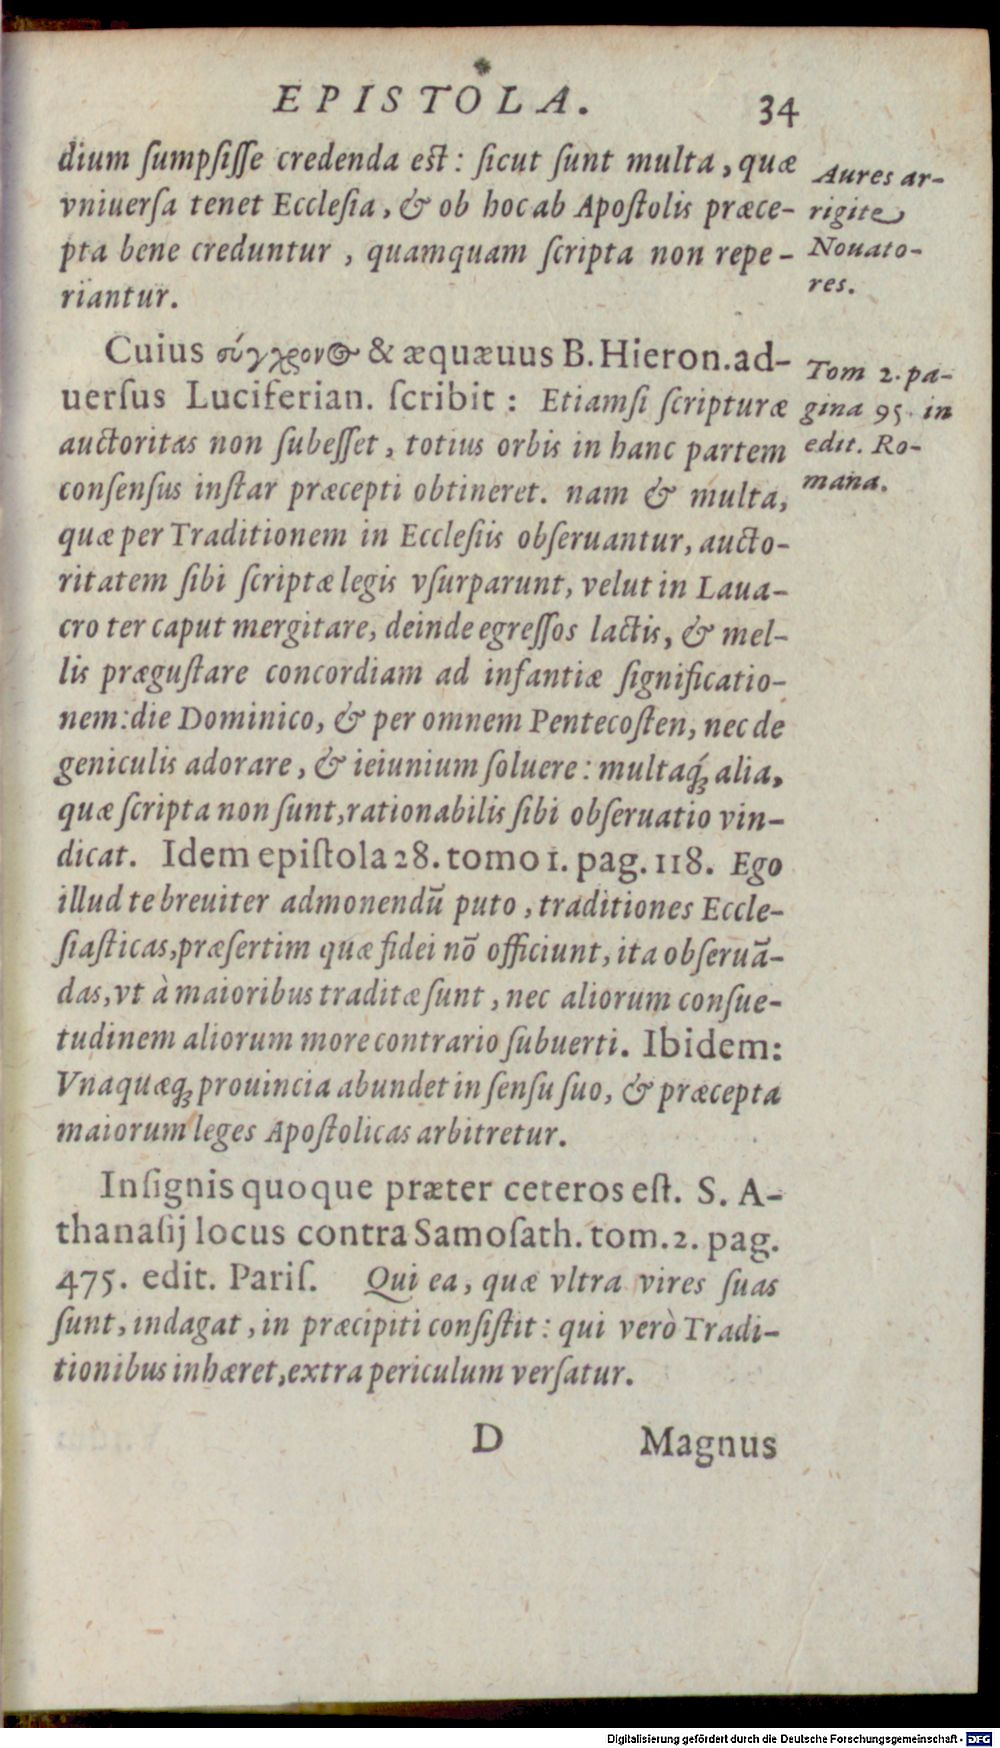 EPISTOLA. 34
dium ſumpſiſſe credenda est: ſicut ſunt multa, quæ
vniuerſa tenet Eccleſia, & ob hoc ab Apoſtolis præce-
pta bene creduntur, quamquam ſcripta non repe-
riantur.
Aures ar-
rigite
Nouato-
res.
Cuius σύγχρονος & æquæuus B. Hieron. ad-
uerſus Luciferian. ſcribit: Etiamſi ſcripturæ
auctoritas non ſubeſſet, totius orbis in hanc partem
conſenſus inſtar præcepti obtineret. nam & multa,
quæ per Traditionem in Eccleſiis obſeruantur, aucto-
ritatem ſibi ſcriptæ legis vſurparunt, velut in Laua-
cro ter caput mergitare, deinde egreſſos lactis, & mel-
lis præguſtare concordiam ad infantiæ ſignificatio-
nem: die Dominico, & per omnem Pentecoſten, nec de
geniculis adorare, & ieiunium ſoluere: multaq́; alia,
quæ ſcripta non ſunt, rationabilis ſibi obſeruatio vin-
dicat. Idem epiſtola 28. tomo 1. pag. 118. Ego
illud te breuiter admonendū puto, traditiones Eccle-
ſiaſticas, præſertim quæ fidei nō officiunt, ita obſeruā-
das, vt à maioribus traditæ ſunt, nec aliorum conſue-
tudinem aliorum more contrario ſubuerti. Ibidem:
Vnaquæq; prouincia abundet in ſenſu ſuo, & præcepta
maiorum leges Apoſtolicas arbitretur.
Tom 2. pa-
gina 95. in
edit. Ro-
mana.
Inſignis quoque præter ceteros eſt. S. A-
thanaſij locus contra Samoſath. tom. 2. pag.
475. edit. Pariſ. Qui ea, quæ vltra vires ſuas
ſunt, indagat, in præcipiti conſiſtit: qui verò Tradi-
tionibus inhæret, extra periculum verſatur.
D Magnus
Digitalisierung gefördert durch die Deutsche Forschungsgemeinschaft - DFG